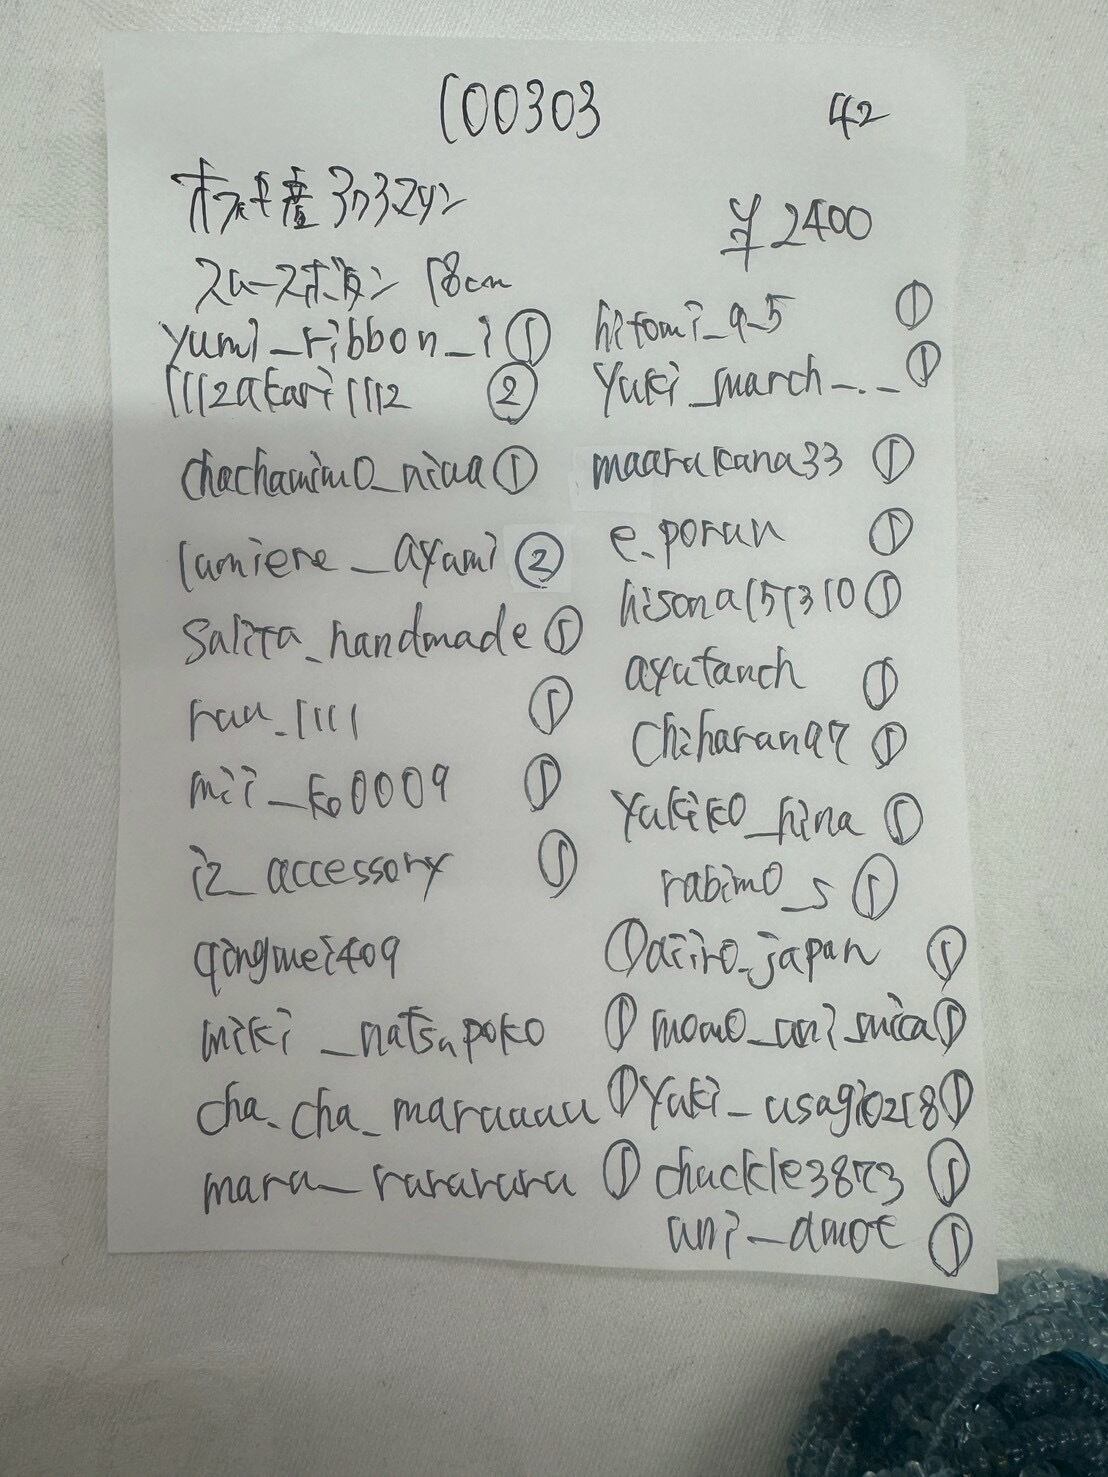 100303
42
¥2400
18cm
yumi_ribbon_i ①
1112akari1112 ②
chachamimo_niua ①
lumiere_ayami ②
Salita_handmade ①
rau_1111 ①
mii_ko0009 ①
iz_accessory ①
qingmei409 ①
miki_natsupoko ①
cha_cha_maruuuu ①
maru_rurarura ①
hitomi_9_5 ①
yuki_march_._ ①
maarukana33 ①
e.porun ①
hisona151310 ①
ayutanch ①
chiharan97 ①
yukiko_hina ①
rabimo_s ①
airo_japan ①
momo_uni_mica ①
yuki_usagi0218 ①
chuckle3873 ①
uni_amoe ①